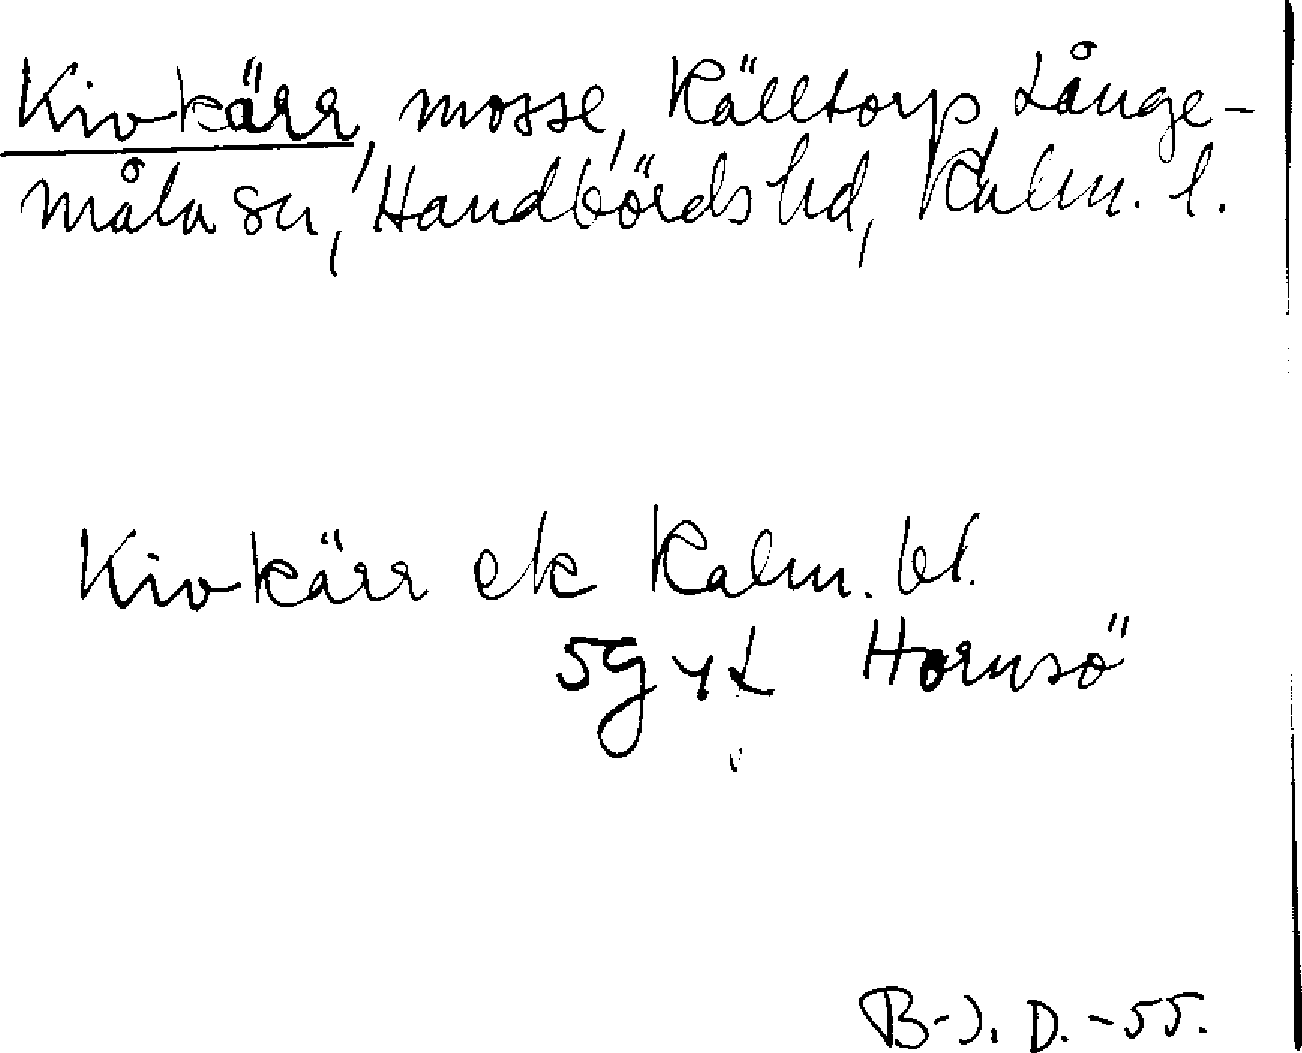 Kivkärr, mosse, Källtorp, Långe-
måla sn, Handbörds hd, Kalm. l.
Kivkärr ek Kalm. bl.
5g y L Hornsö
B-J. D. -55.